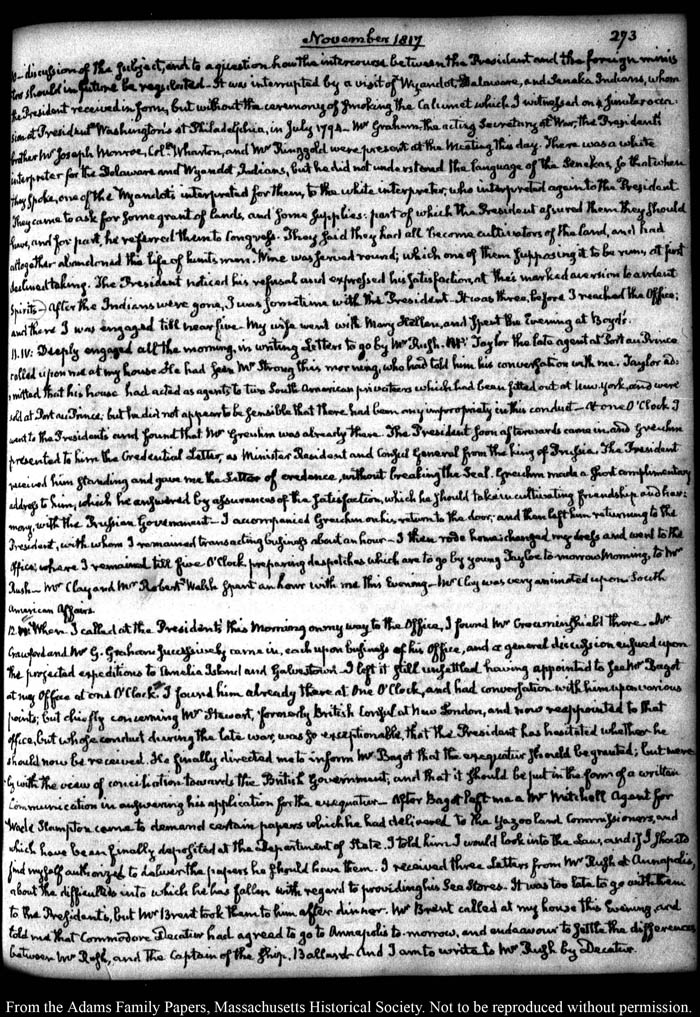 November 1817
293
discussion of the subject, and to a question how the intercourse between the President and the foreign minis
ters should in future be regulated— It was interrupted by a visit of Wyandot, Delaware, and Seneka Indians, whom
the President received in form, but without the ceremony of smoking the Calumet which I witnessed on a similar occa
sion at President Washington's at Philadelphia, in July 1794— Mr Graham the acting Secretary at War, the President's
brother Mr Joseph Monroe, Coll. Wharton, and Mr Ringgold were present at the Meeting this day. There was a white
interpreter for the Delaware and Wyandot Indians, but he did not understand the language of the Senekas, so that when
they spoke, one of the Wyandots interpreted for them, to the white interpreter, who interpreted again to the President.
They came to ask for some grant of lands, and some supplies: part of which the President assured them they should
have, and for part, he referred them to Congress. They said they had all become cultivators of the land, and had
altogether abandoned the life of hunts men. Wine was served round; which one of them supposing it to be rum, at first
declined taking. The President noticed his refusal and expressed his satisfaction, at this marked aversion to ardent
Spirits— After the Indians were gone, I was some time with the President. It was three, before I reached the Office;
and there I was engaged till near five— My wife went with Mary Hellen, and spent the Evening at Boyd's.
11. IV: Deeply engaged all the morning, in writing Letters to go by Mr Rush. Mr Taylor the late agent at Port au Prince
called upon me at my house. He had seen Mr Strong this morning, who had told him his conversation with me. Taylor ad:
mitted that his house had acted as agents to two South American privateers which had been fitted out at New York, and were
sold at Port au Prince; but he did not appear to be sensible that there had been any impropriety in this conduct— At one O'Clock I
went to the President's and found that Mr Greuhm was already there. The President soon afterwards came in, and Greuhm
presented to him the Credential Letter, as Minister Resident and Consul General from the king of Prussia. The President
received him standing and gave me the Letter of credence, without breaking the Seal. Greuhm made a short complimentary
address to him; which he answered by assurances of the satisfaction, which he should take in cultivating friendship and har:
mony, with the Prussian Government— I accompanied Greuhm on his return to the door; and then left him returning to the
President, with whom I remained transacting business about an hour— I then rode home: changed my dress and went to the
Office; where I remained till five O'Clock preparing despatches which are to go by young Tayloe to-morrow Morning, to Mr
Rush— Mr Clay and Mr Robert Walsh spent an hour with me this Evening— Mr Clay was very animated upon South
American Affairs.
12. When I called at the President's this Morning on my way to the Office, I found Mr Crowninshield there— Mr
Crawford and Mr G. Graham successively came in, each upon business of his Office, and a general discussion ensued upon
the projected expeditions to Amelia Island and Galveztown— I left it still unsettled having appointed to see Mr Bagot
at my Office at one O'Clock. I found him already there at One O'Clock, and had conversation with him upon various
points; but chiefly concerning Mr Stewart, formerly British Consul at New London, and now reappointed to that
Office, but whose conduct during the late war, was so exceptionable, that the President has hesitated whether he
should now be received. He finally directed me to inform Mr Bagot that the exequatur should be granted; but mere
ly with the view of conciliation towards the British Government; and that it should be put in the form of a written
Communication in answering his application for the exequatur— After Bagot left me a Mr Mitchell Agent for
Wade Hampton came to demand certain papers which he had delivered to the Yazoo land Commissioners, and
which have been finally deposited at the Department of State. I told him I would look into the Law, and if I should
find myself authorized to deliver the papers he should have them. I received three Letters from Mr Rush at Annapolis,
about the difficulties into which he has fallen with regard to providing his Sea Stores. It was too late to go with them
to the President's, but Mr Brent took them to him after dinner. Mr Brent called at my house this Evening, and
told me that Commodore Decatur had agreed to go to Annapolis to-morrow, and endeavour to settle the differences
between Mr Rush, and the Captain of the Ship, Ballard— And I am to write to Mr Rush by Decatur.
From the Adams Family Papers, Massachusetts Historical Society. Not to be reproduced without permission.